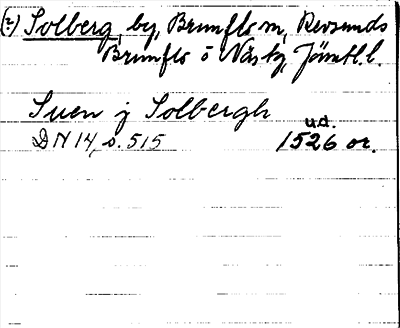 (?) Solberg, by, Brunflo sn, Revsunds
Brunflo o Näsky, Jämtl.l.
Suen j Solbergh
u.d.
DN 14, s. 515 1526 or.